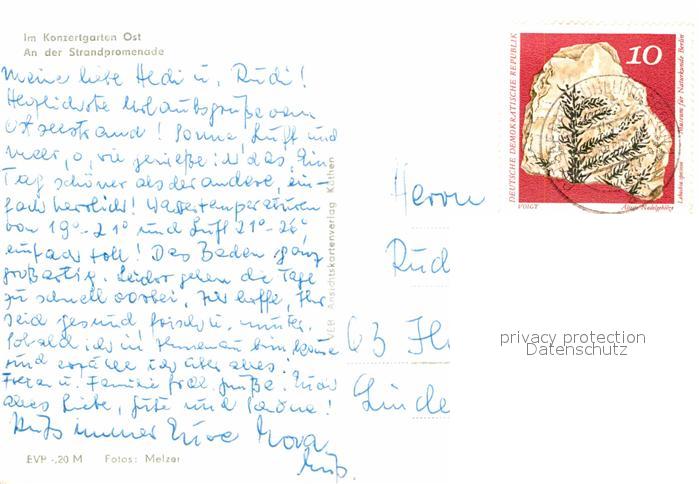 Im Konzertgarten Ost
An der Strandpromenade
Meine liebe Hedi u. Rudi!
Herzlichste Urlaubsgrüße vom
Ostseestrand! Sonne, Luft und
Meer, o, wie genieße ich das. Ein
Tag schöner als der andere, ein-
fach herrlich! Wassertemperaturen
von 19°-21° und Luft 21°-26°,
einfach toll! Das Baden ganz
großartig. Leider gehen die Tage
zu schnell vorbei. Ich hoffe, Ihr
seid gesund, frisch u. munter.
Sobald ich in Ilmenau bin, komme
und erzähle ich über alles!
u. Familie frdl. Grüße. Euch
alles Liebe, Gute und Schöne!
immer Eure
VEB Ansichtskartenverlag Köthen
EVP -,20 M Fotos: Melzer
DEUTSCHE DEMOKRATISCHE REPUBLIK
10
Museum für Naturkunde Berlin
Lebachia speciosa
VOIGT
Älteste Nadelhölzer
Herrn
Rud
63 Il
Linde
privacy protection
Datenschutz